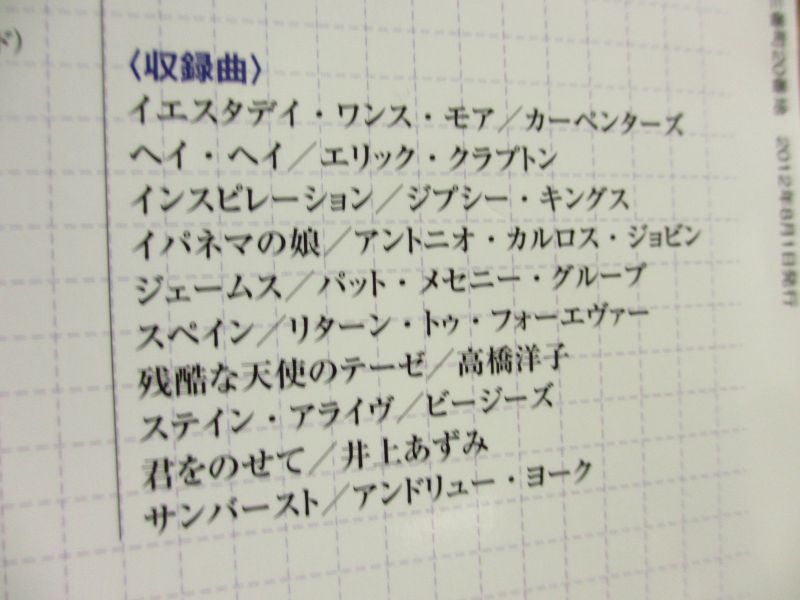 ド）
〈収録曲〉
イエスタデイ・ワンス・モア／カーペンターズ
ヘイ・ヘイ／エリック・クラプトン
インスピレーション／ジプシー・キングス
イパネマの娘／アントニオ・カルロス・ジョビン
ジェームス／パット・メセニー・グループ
スペイン／リターン・トゥ・フォーエヴァー
残酷な天使のテーゼ／高橋洋子
ステイン・アライヴ／ビージーズ
君をのせて／井上あずみ
サンバースト／アンドリュー・ヨーク
20番地 2012年8月1日発行